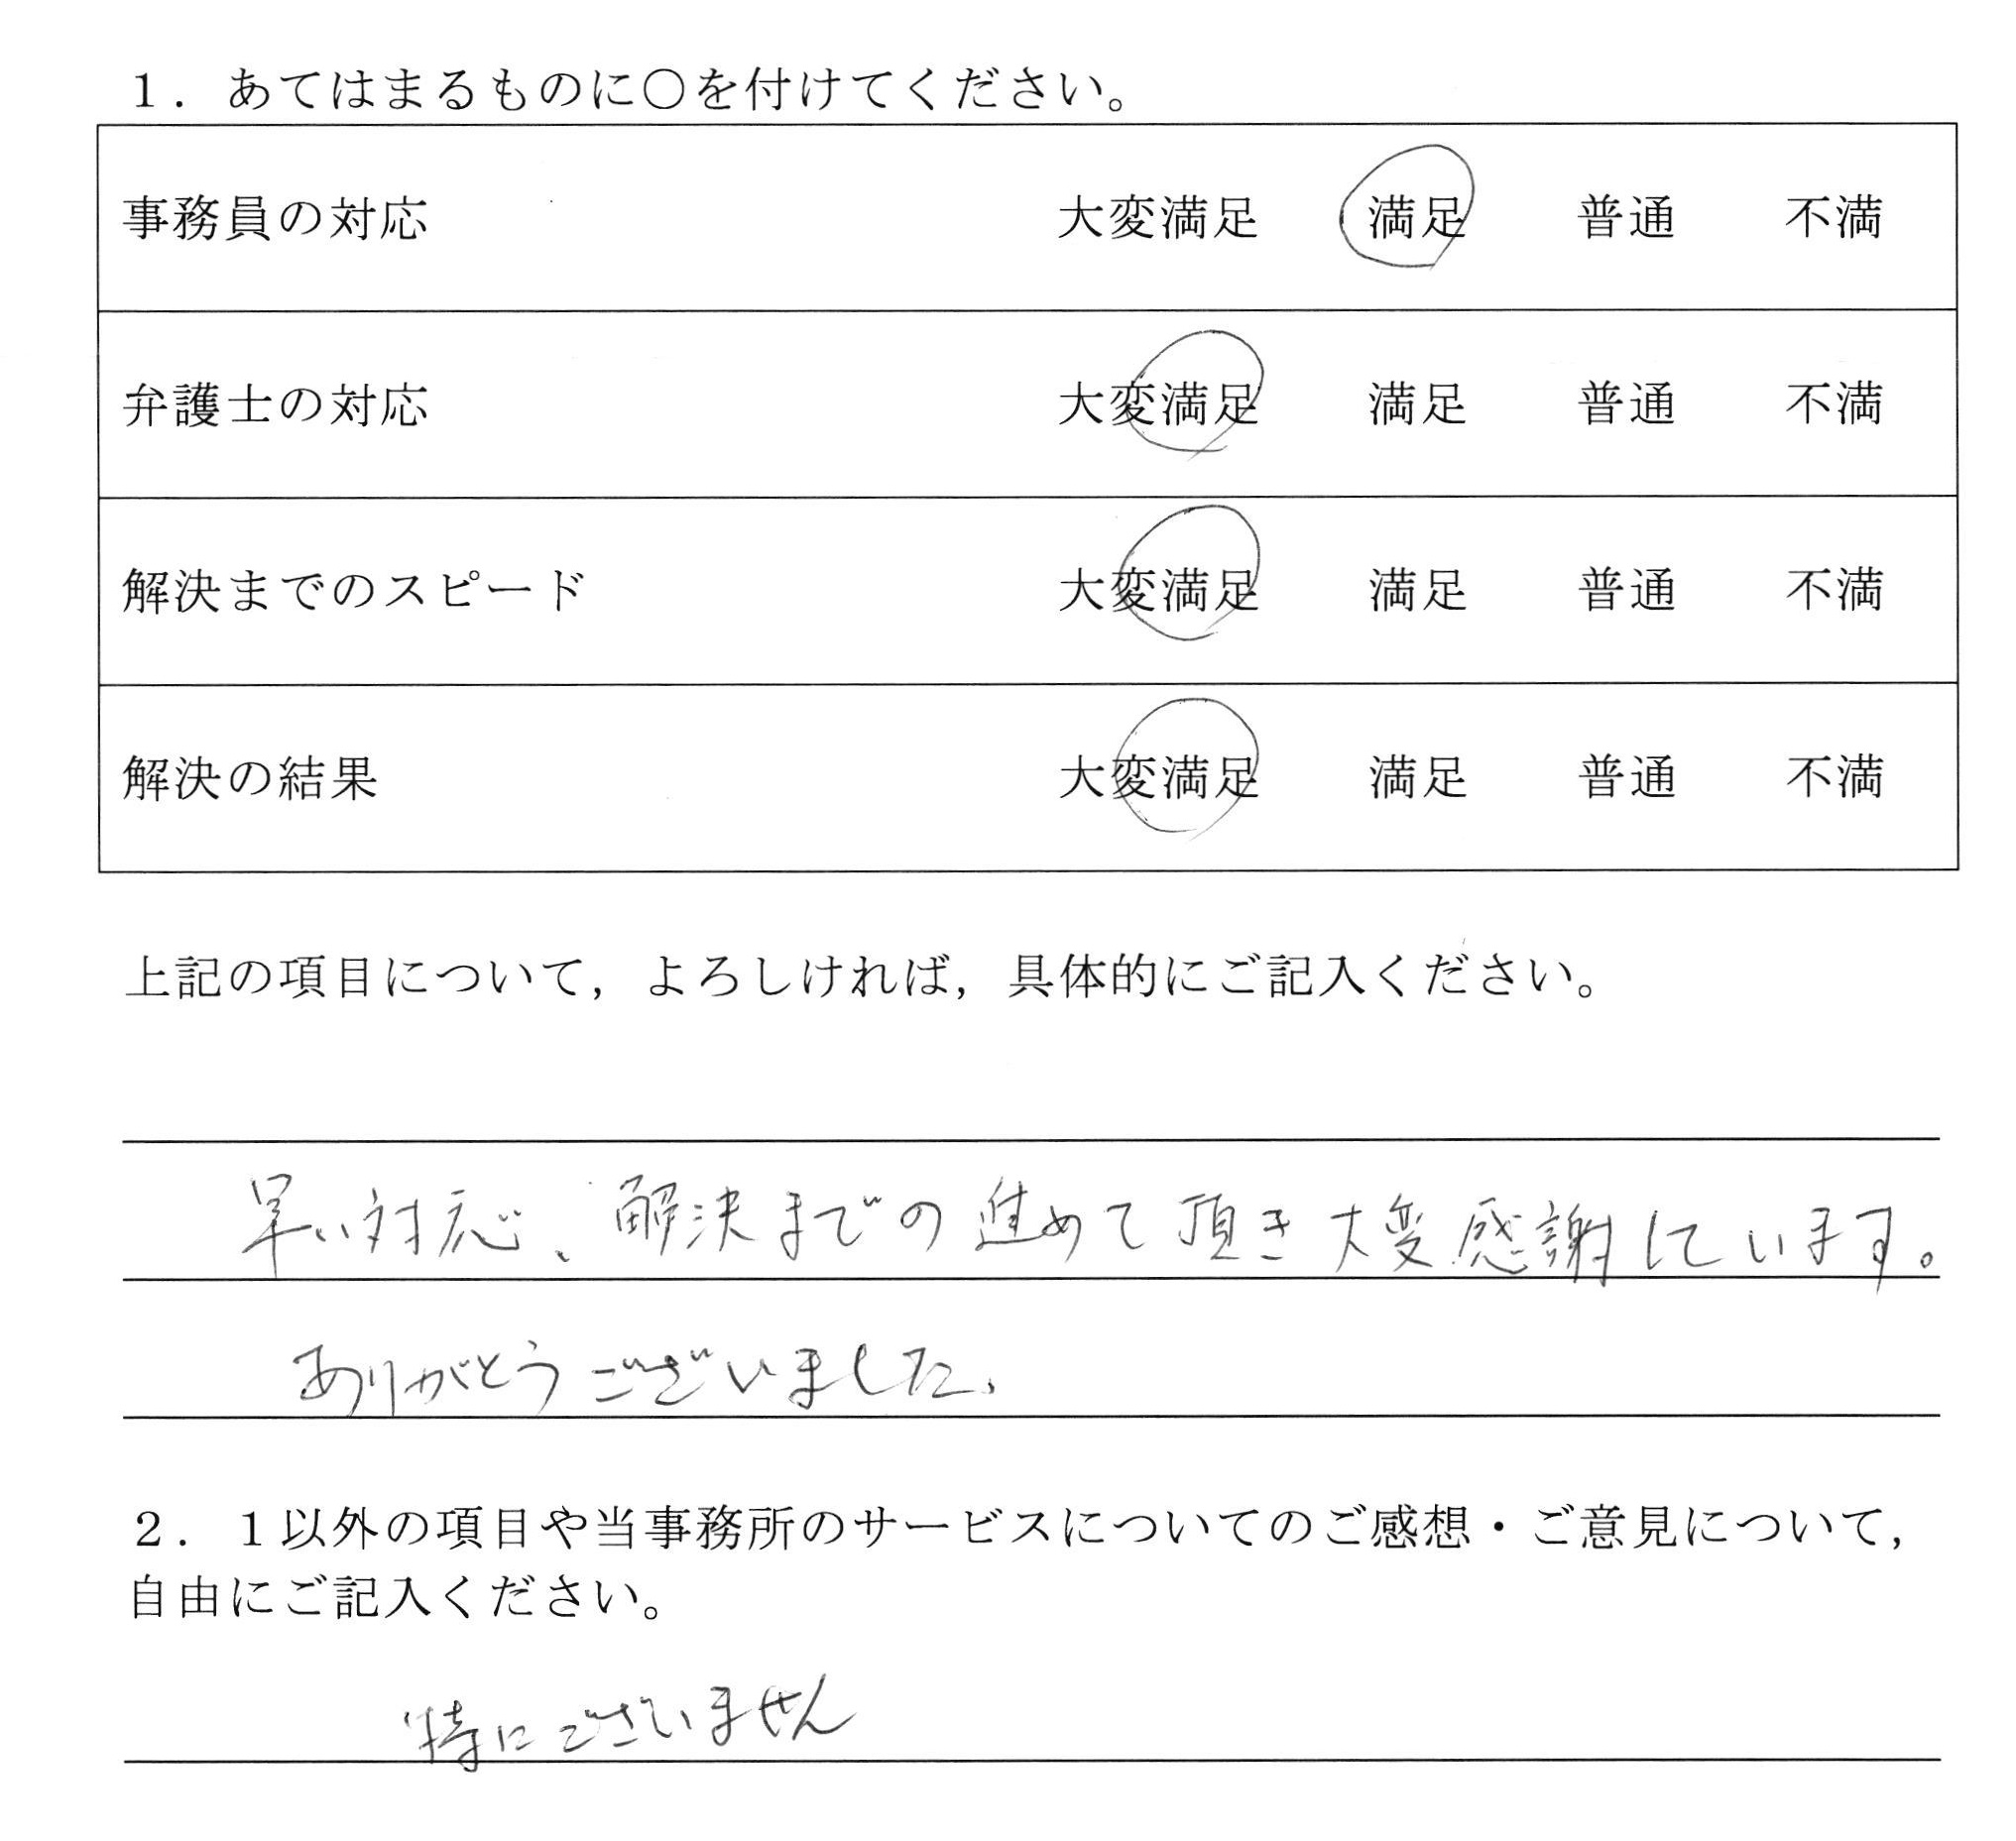 １．あてはまるものに○を付けてください。
事務員の対応 大変満足 満足 普通 不満
弁護士の対応 大変満足 満足 普通 不満
解決までのスピード 大変満足 満足 普通 不満
解決の結果 大変満足 満足 普通 不満
上記の項目について，よろしければ，具体的にご記入ください。
早い対応、解決までの進めて頂き大変感謝しています。
ありがとうございました、
２．１以外の項目や当事務所のサービスについてのご感想・ご意見について，
自由にご記入ください。
特にございません